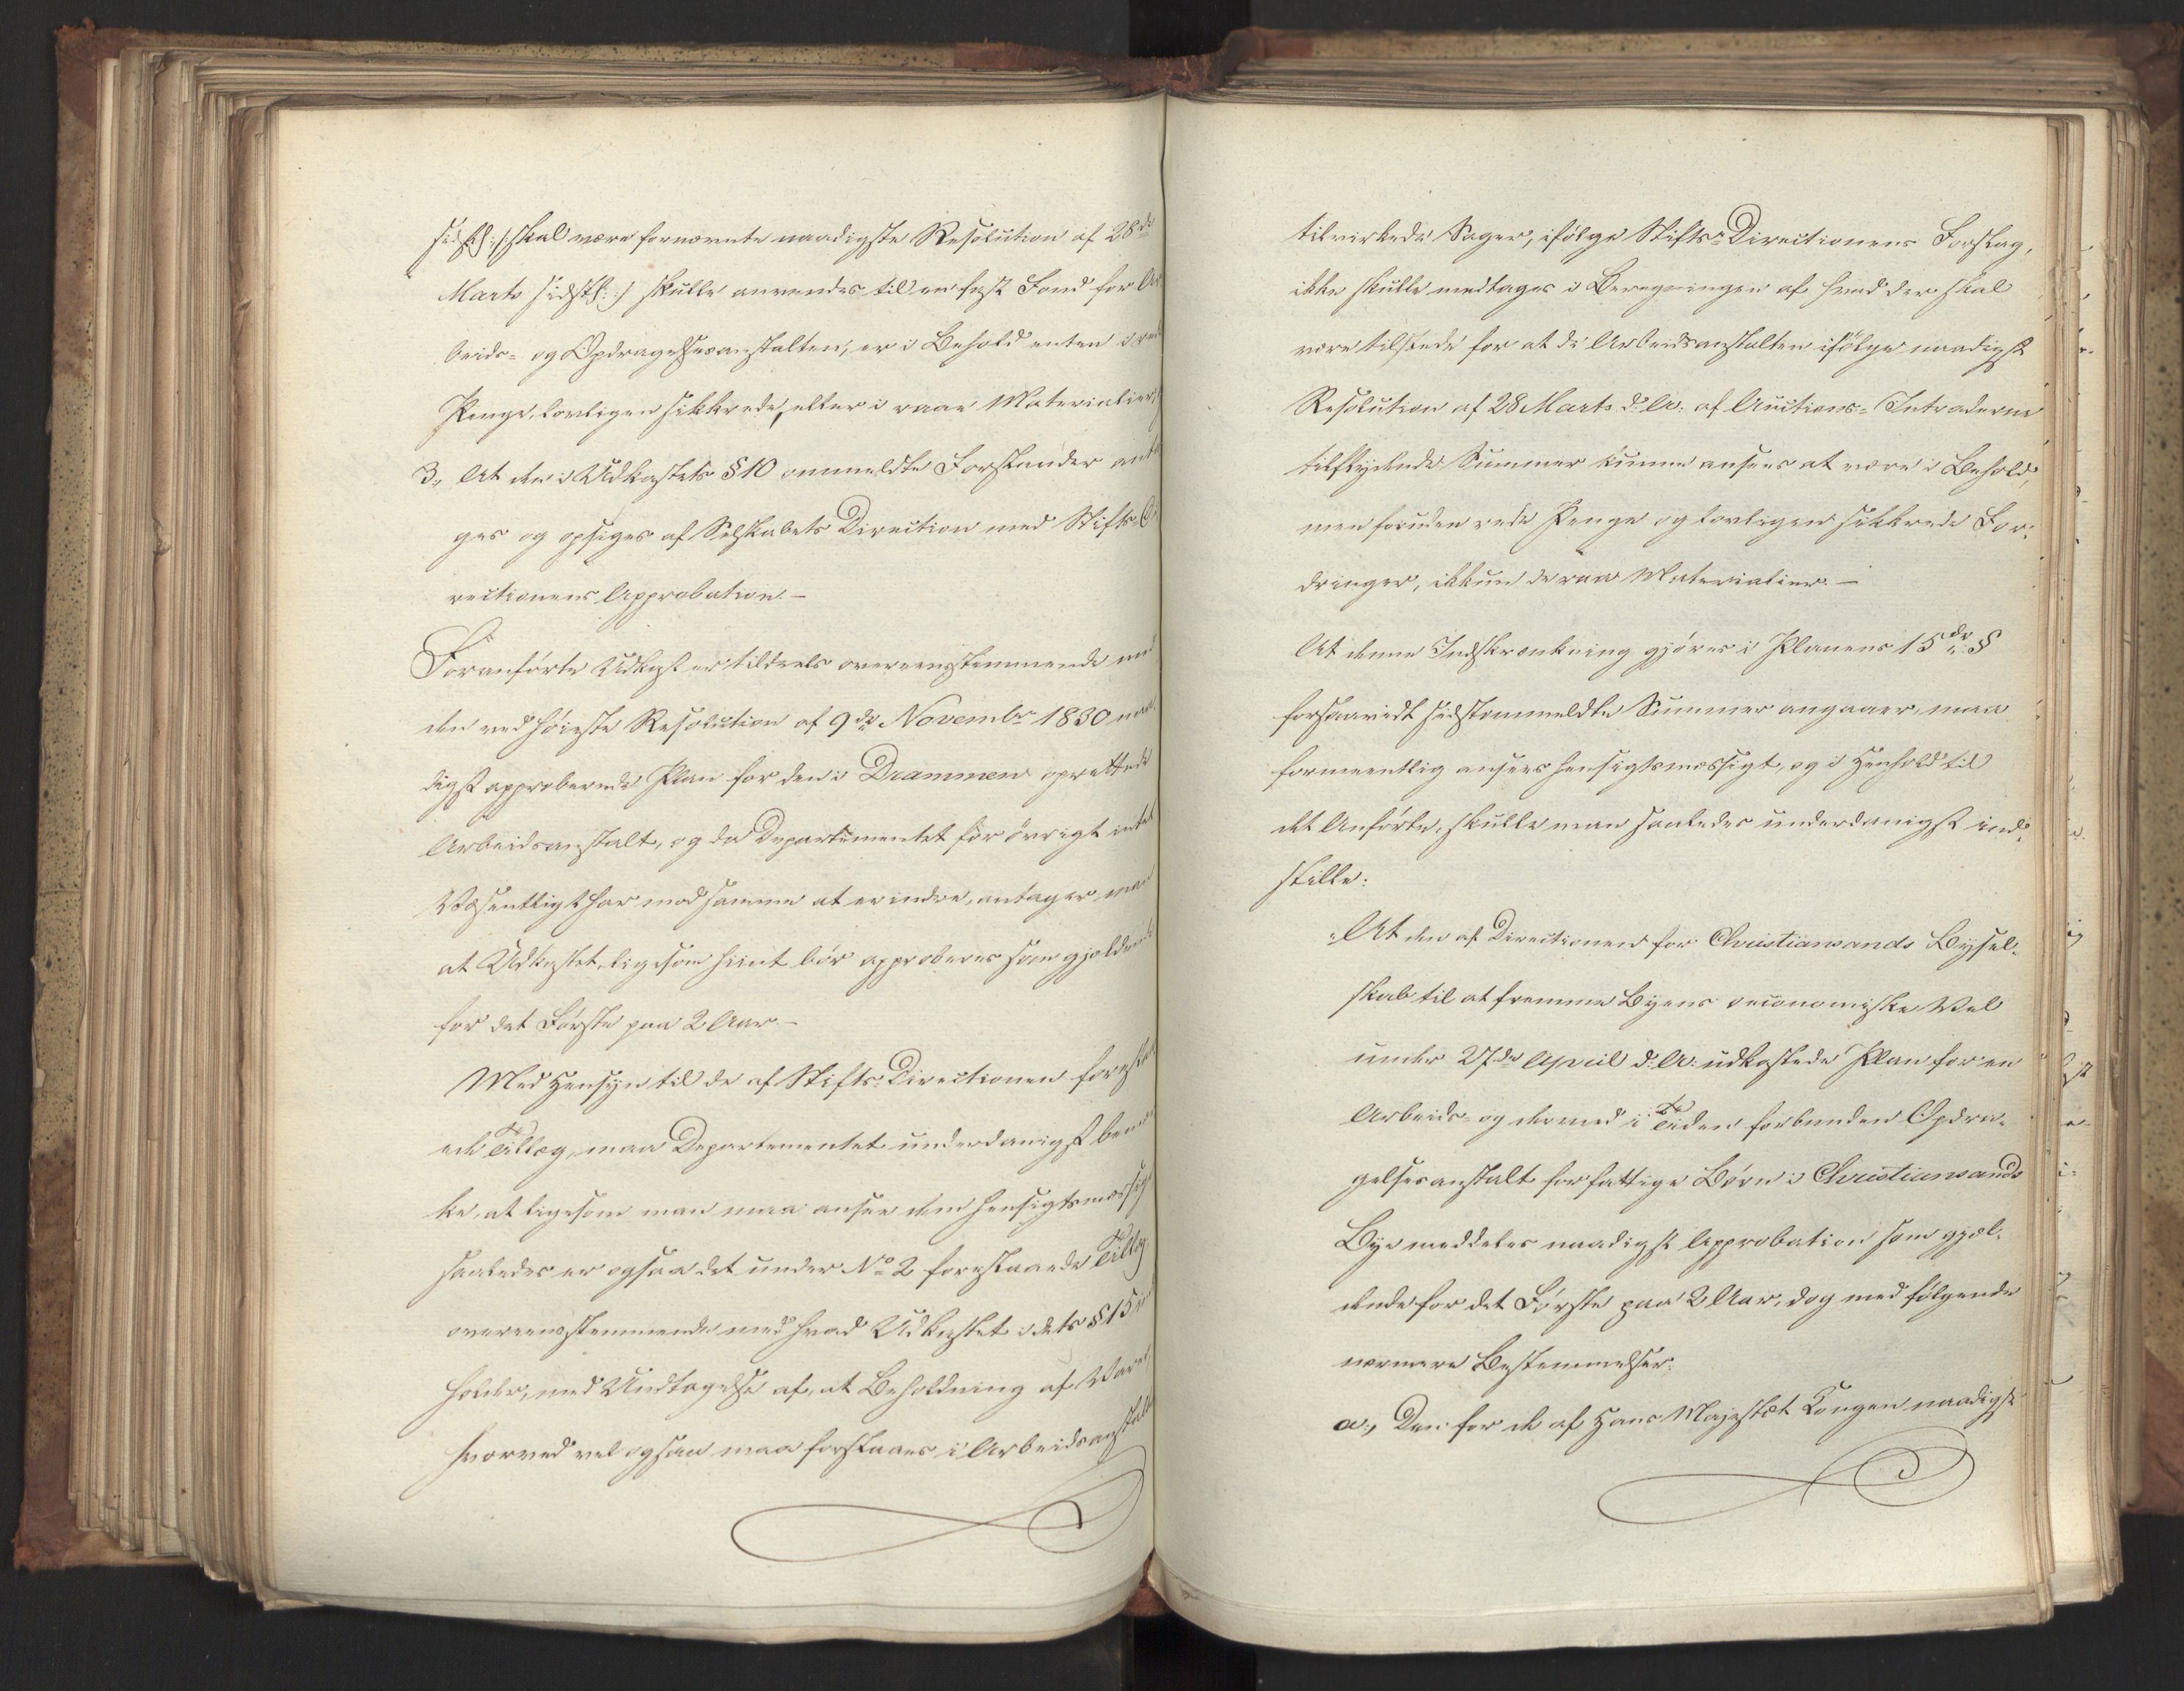 sidstl: /: skal være fornævnte naadigste Resolution af 28de
Marts sidstl: :/ skulle anvendes til en fast Fond for Ar
beids- og Opdragelsesanstalten, er i Behold enten i rede
Penge, lovligen sikkrede, eller i raae Materialier,
3, At den i Udkastets § 10 ommeldte Forstander anta
ges og opsiges af Selskabets Direction med Stifts-Di
rectionens Approbation. –
Foranførte Udkast er tildeels overeensstemmende med
den ved høieste Resolution af 9de Novembr 1830 naa
digst approberede Plan for den i Drammen oprettede
Arbeidsanstalt, og da Departementet for øvrigt intet
Væsentligt har mod samme at erindre, antager man
at Udkastet, ligesom hiint bør approberes som gjældende
for det Første paa 2 Aar. –
Med Hensyn til de af Stifts-Directionen foreslaa
ede Tillæg, maa Departementet underdanigst bemær
ke, at ligesom man maa ansee dem hensigtsmæssige
saaledes er ogsaa det under No 2 foreslaaede Tillæg
overeensstemmende med hvad Udkastet i dets § 15 inde
holder, med Undtagelse af, at Beholdning af Varer,
hvorved vel ogsaa maa forstaaes i Arbeidsanstalten
tilvirkede Sager, ifølge Stifts-Directionens Forslag,
ikke skulle medtages i Beregningen af hvad der skal
være tilstede for at de Arbeidsanstalten ifølge naadigst
Resolution af 28 Marts d: A: af Auctions-Intraderne
tilflydende Summer kunne ansees at være i Behold,
men foruden rede Penge og lovligen sikkrede For-
dringer, ikkun de raae Materialier. –
At denne Indskrænkning gjøres i Planens 15de §
forsaavidt sidstommeldte Summer angaaer, maa
formeentlig ansees hensigtsmæssigt, og i Henhold til
det Anførte, skulle man saaledes underdanigst ind-
stille:
"At den af Directionen for Christiansands Byesel-
skab til at fremme Byens oeconomiske Vel
under 27de April d: A: udkastede Plan for en
Arbeids- og dermed i Tiden forbunden Opdra-
gelsesanstalt for fattige Børn i Christiansands
Bye meddeles naadigst Approbation som gjæl-
dende for det Første paa 2 Aar, dog med følgende
nærmere Bestemmelser:
a., Den for de af Hans Majestæt Kongen naadigst